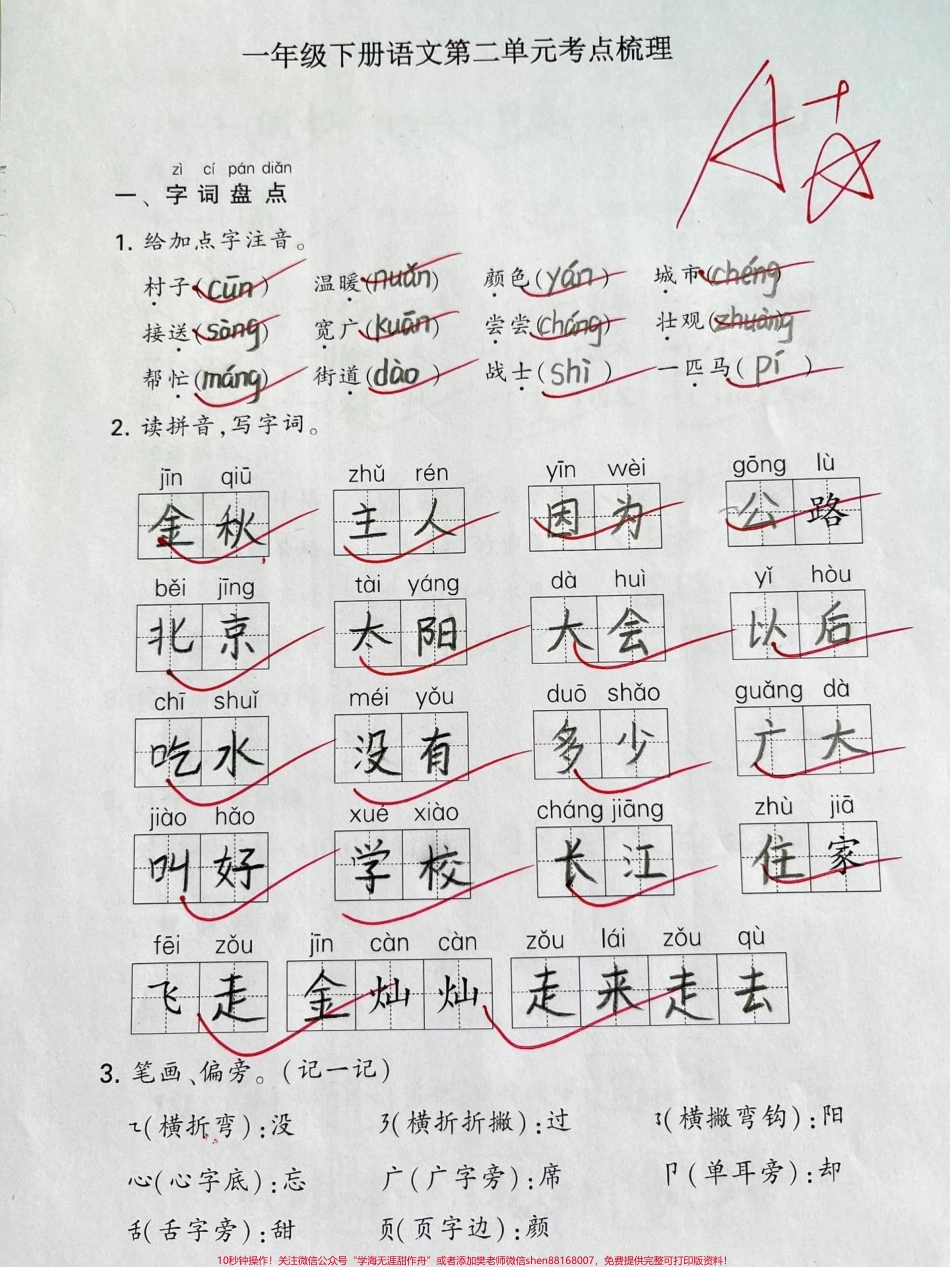 一年级下册语文第二单元考点梳理
A+
zì cí pán diǎn
一、字词盘点
1. 给加点字注音。
村子(cūn) 温暖(nuǎn) 颜色(yán) 城市(chéng)
接送(sòng) 宽广(kuān) 尝尝(cháng) 壮观(zhuàng)
帮忙(máng) 街道(dào) 战士(shì) 一匹马(pí)
2. 读拼音,写字词。
jīn qiū zhǔ rén yīn wèi gōng lù
金秋 主人 因为 公路
běi jīng tài yáng dà huì yǐ hòu
北京 太阳 大会 以后
chī shuǐ méi yǒu duō shǎo guǎng dà
吃水 没有 多少 广大
jiào hǎo xué xiào cháng jiāng zhù jiā
叫好 学校 长江 住家
fēi zǒu jīn càn càn zǒu lái zǒu qù
飞走 金灿灿 走来走去
3. 笔画、偏旁。(记一记)
㇍(横折弯):没 ㇋(横折折撇):过 ㇌(横撇弯钩):阳
心(心字底):忘 广(广字旁):席 卩(单耳旁):却
舌(舌字旁):甜 页(页字边):颜
10秒钟操作!关注微信公众号“学海无涯甜作舟”或者添加樊老师微信shen88168007,免费提供完整可打印版资料!